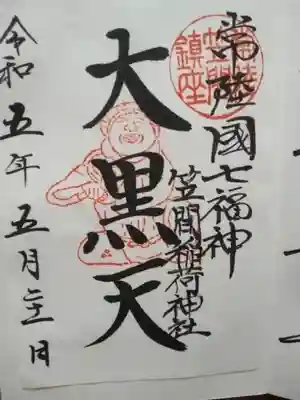 常陸國七福神
笠間稲荷神社
大黒天
令和五年五月二十一日
鎮座